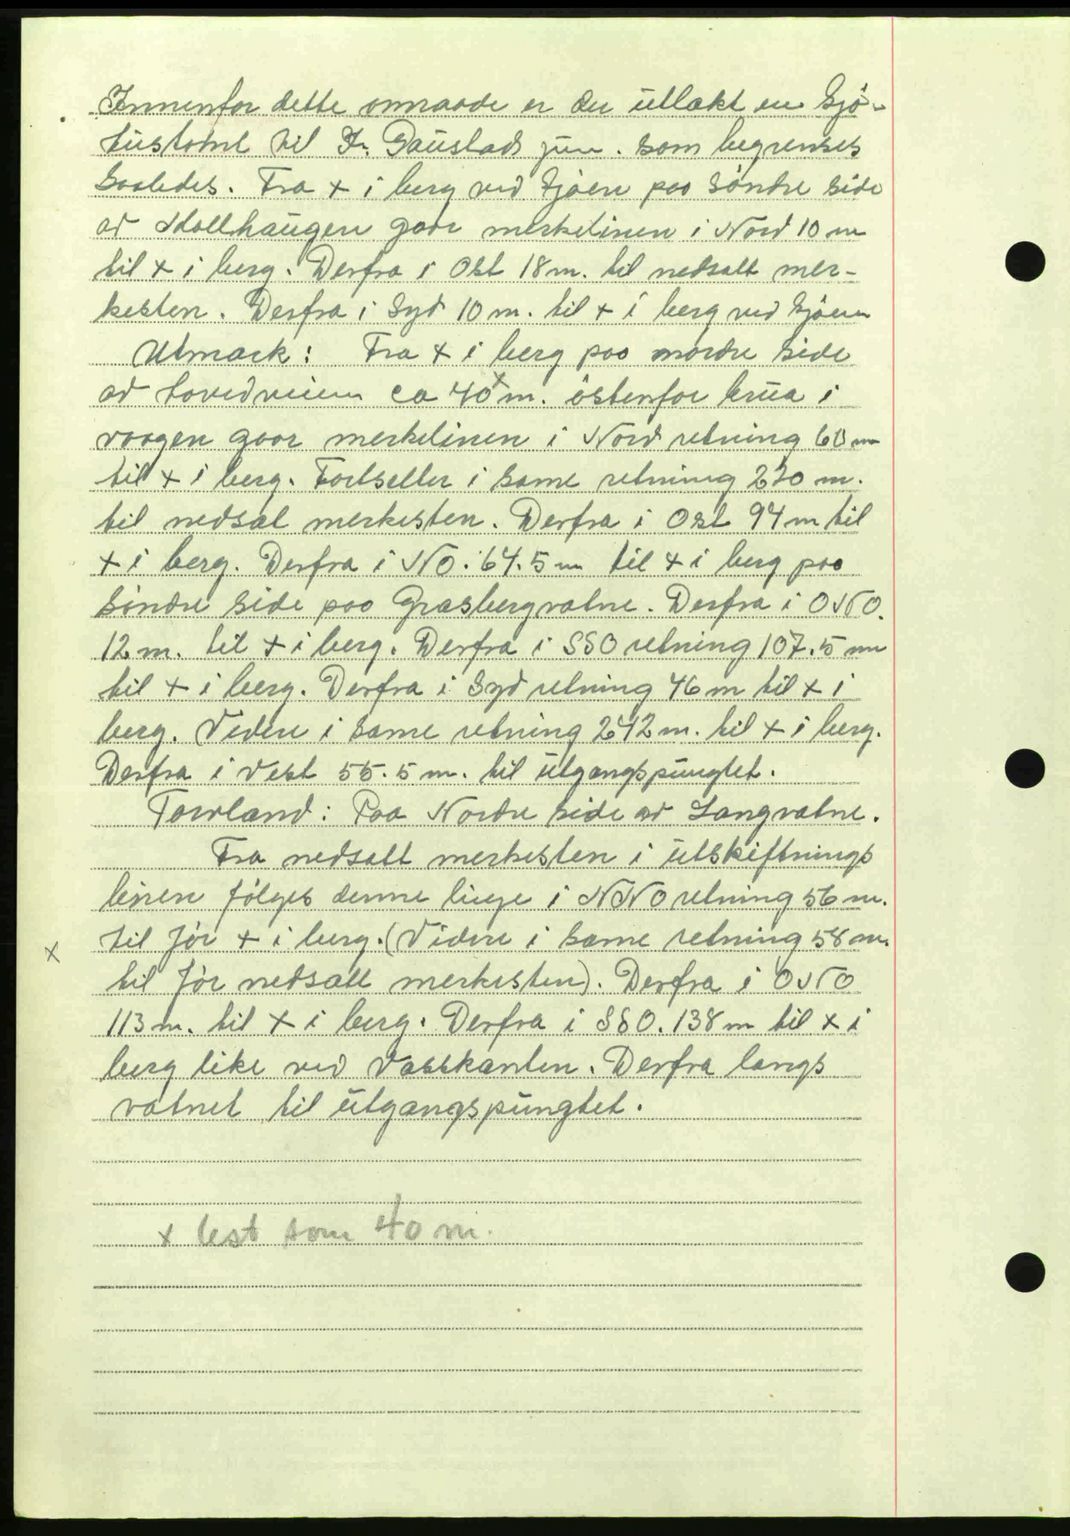 Innenfor dette omraade er der utlakt en Sjö-
hustomt til Fr. Gaustad jun. som begrenses
saaledes. Fra + i berg ved sjöen paa söndre side
av Hollhaugen gaar merkelinen i Nord 10 m
til + i berg. Derfra i Ost 18 m. til nedsatt mer-
kesten. Derfra i Syd 10 m. til + i berg ved sjöen
Utmark: Fra + i berg paa nordre side
av hovedveien ca 40 x m. östenfor brua i
vaagen gaar merkelinen i Nord retning 60 m
til + i berg. Fortsetter i same retning 230 m.
til nedsat merkesten. Derfra i Ost 94 m til
+ i berg. Derfra i NO. 64.5 m til + i berg paa
söndre side paa Grasbergvatne. Derfra i ONO.
12 m. til + i berg. Derfra i SSO retning 107.5 m
til + i berg. Derfra i Syd retning 46 m til + i
berg. Videre i same retning 242 m. til + i berg.
Derfra i Vest 55.5 m. til utgangspungtet.
Torvland: Paa Nordre side av Langvatne.
Fra nedsatt merkesten i utskiftnings
linen fölges denne linje i NNO retning 56 m.
til för + i berg. (Videre i same retning 58 m.
x
til för nedsatt merkesten). Derfra i ONO
113 m. til + i berg. Derfra i SSO. 138 m til + i
berg like ved Vasskanten. Derfra langs
vatnet til utgangspungtet.
x lest som 40 m.